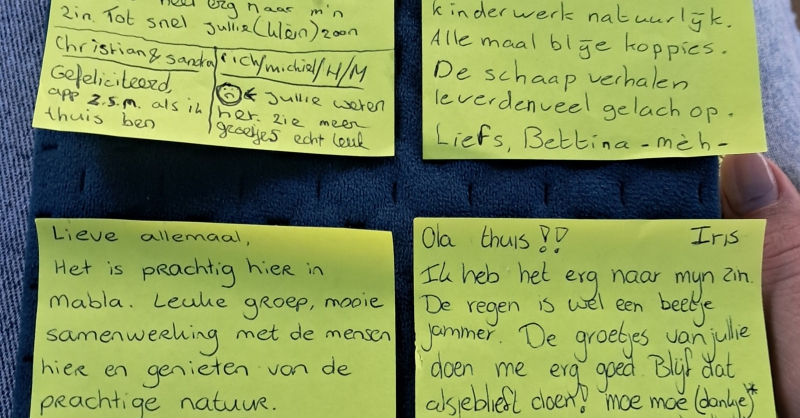 erg naar m'n
zin. Tot snel jullie (klein) zoon
Christian & sandra
Gefeliciteerd,
app z.s.m. als ik
thuis ben
rick/michiel/H/M
jullie weten
het. zie meer
groetjes echt leuk
kinderwerk natuurlijk.
Alle maal blije koppies.
De schaap verhalen
leverden veel gelach op.
Liefs, Bettina - mèh -
Lieve allemaal,
Het is prachtig hier in
Mabla. Leuke groep, mooie
samenwerking met de mensen
hier en genieten van de
prachtige natuur.
Ola thuis!! Iris
Ik heb het erg naar mijn zin.
De regen is wel een beetje
jammer. De groetjes van jullie
doen me erg goed. Blijf dat
alsjeblieft doen! moe moe (dankje)*